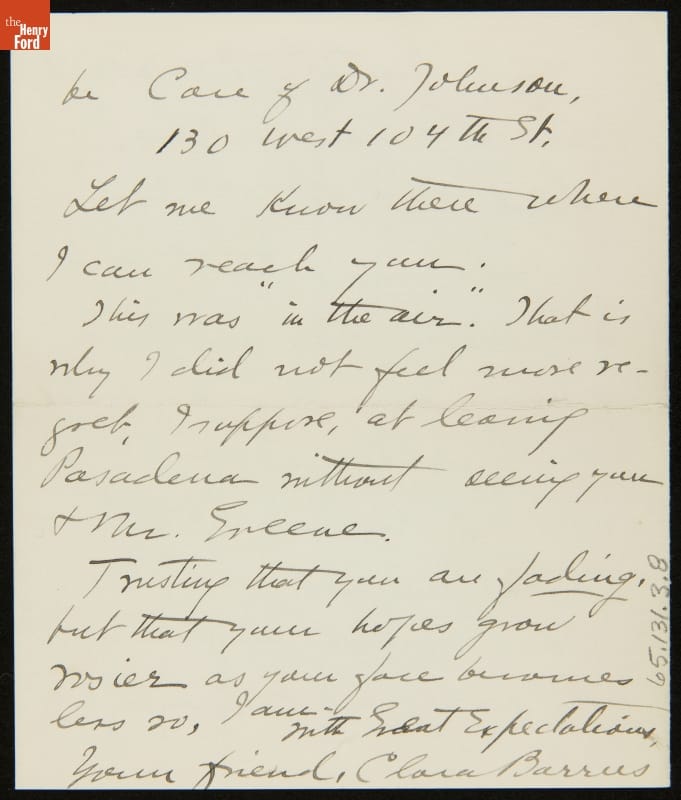 the
Henry
Ford
be Care of Dr. Johnson,
130 West 104th St.
Let me know there where
I can reach you.
This was "in the air". That is
why I did not feel more re-
gret, I suppose, at leaving
Pasadena without seeing you
& Mr. Greene.
Trusting that you are fading,
but that your hopes grow
rosier as your face becomes
less so, I am-
with Great Expectations,
Your friend, Clara Barrus
65.131.3.8